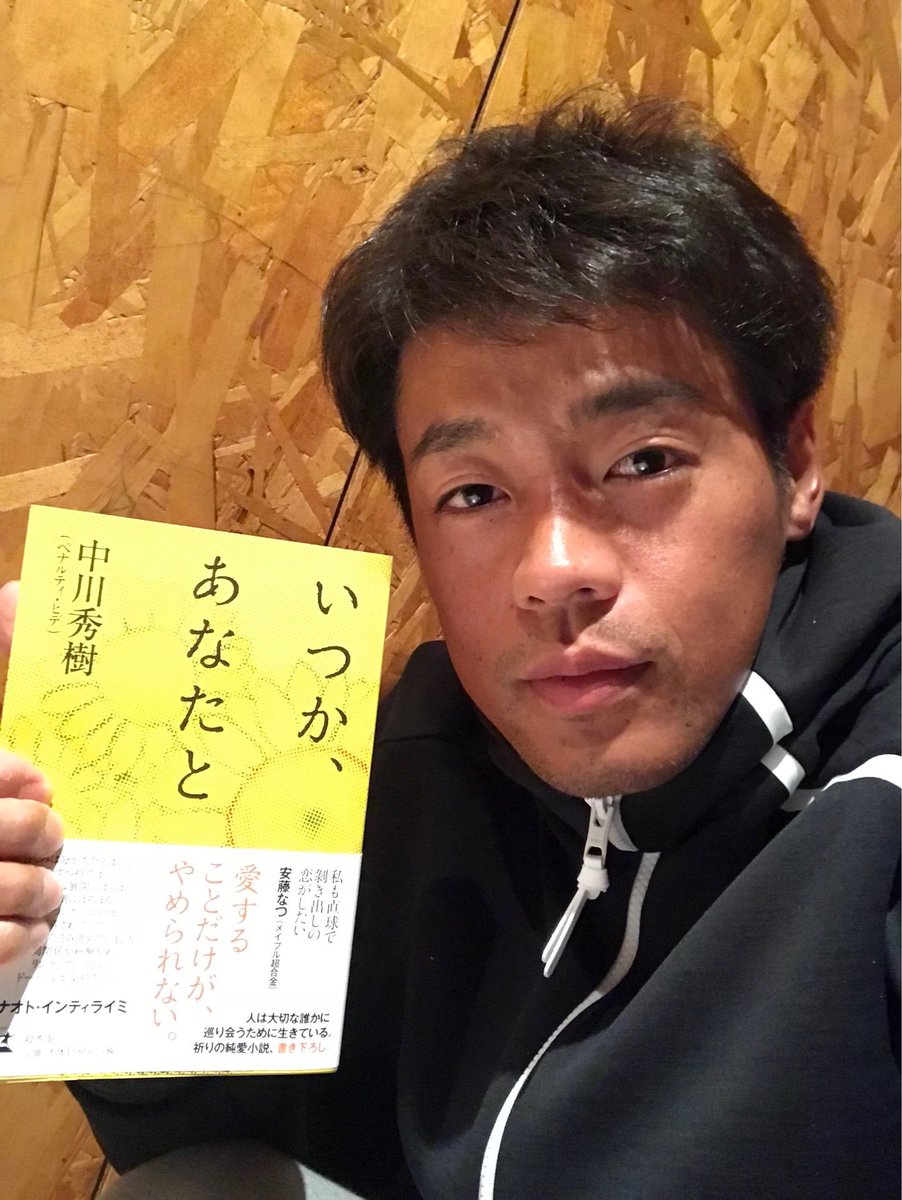 いつか、
あなたと
中川秀樹
(ペナルティ・ヒデ)
私も直球で
剝き出しの
恋がしたい
安藤なつ(メイプル超合金)
愛する
ことだけが、
やめられない。
ナオト・インティライミ
人は大切な誰かに
巡り会うために生きている。
祈りの純愛小説、書き下ろし